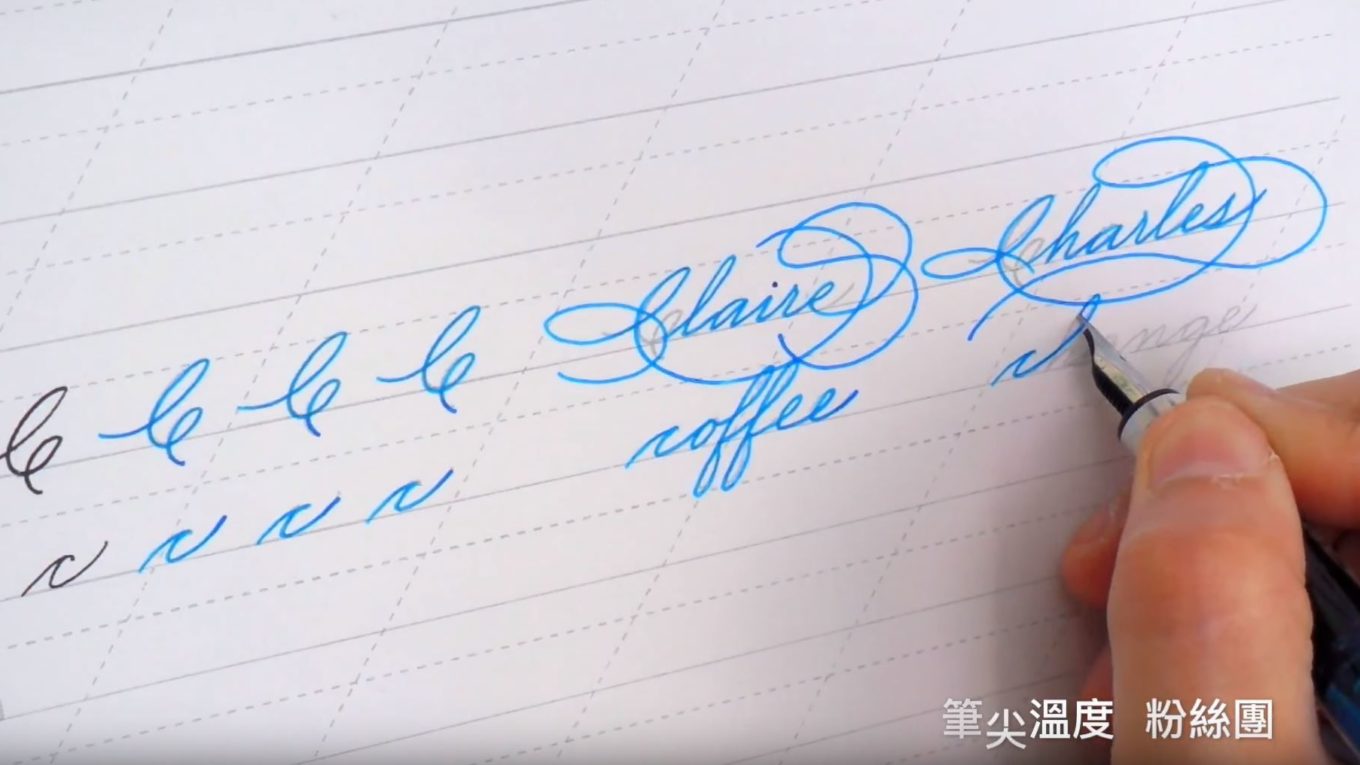 C C C C Claire Charles
c c c c coffee change
筆尖溫度 粉絲團